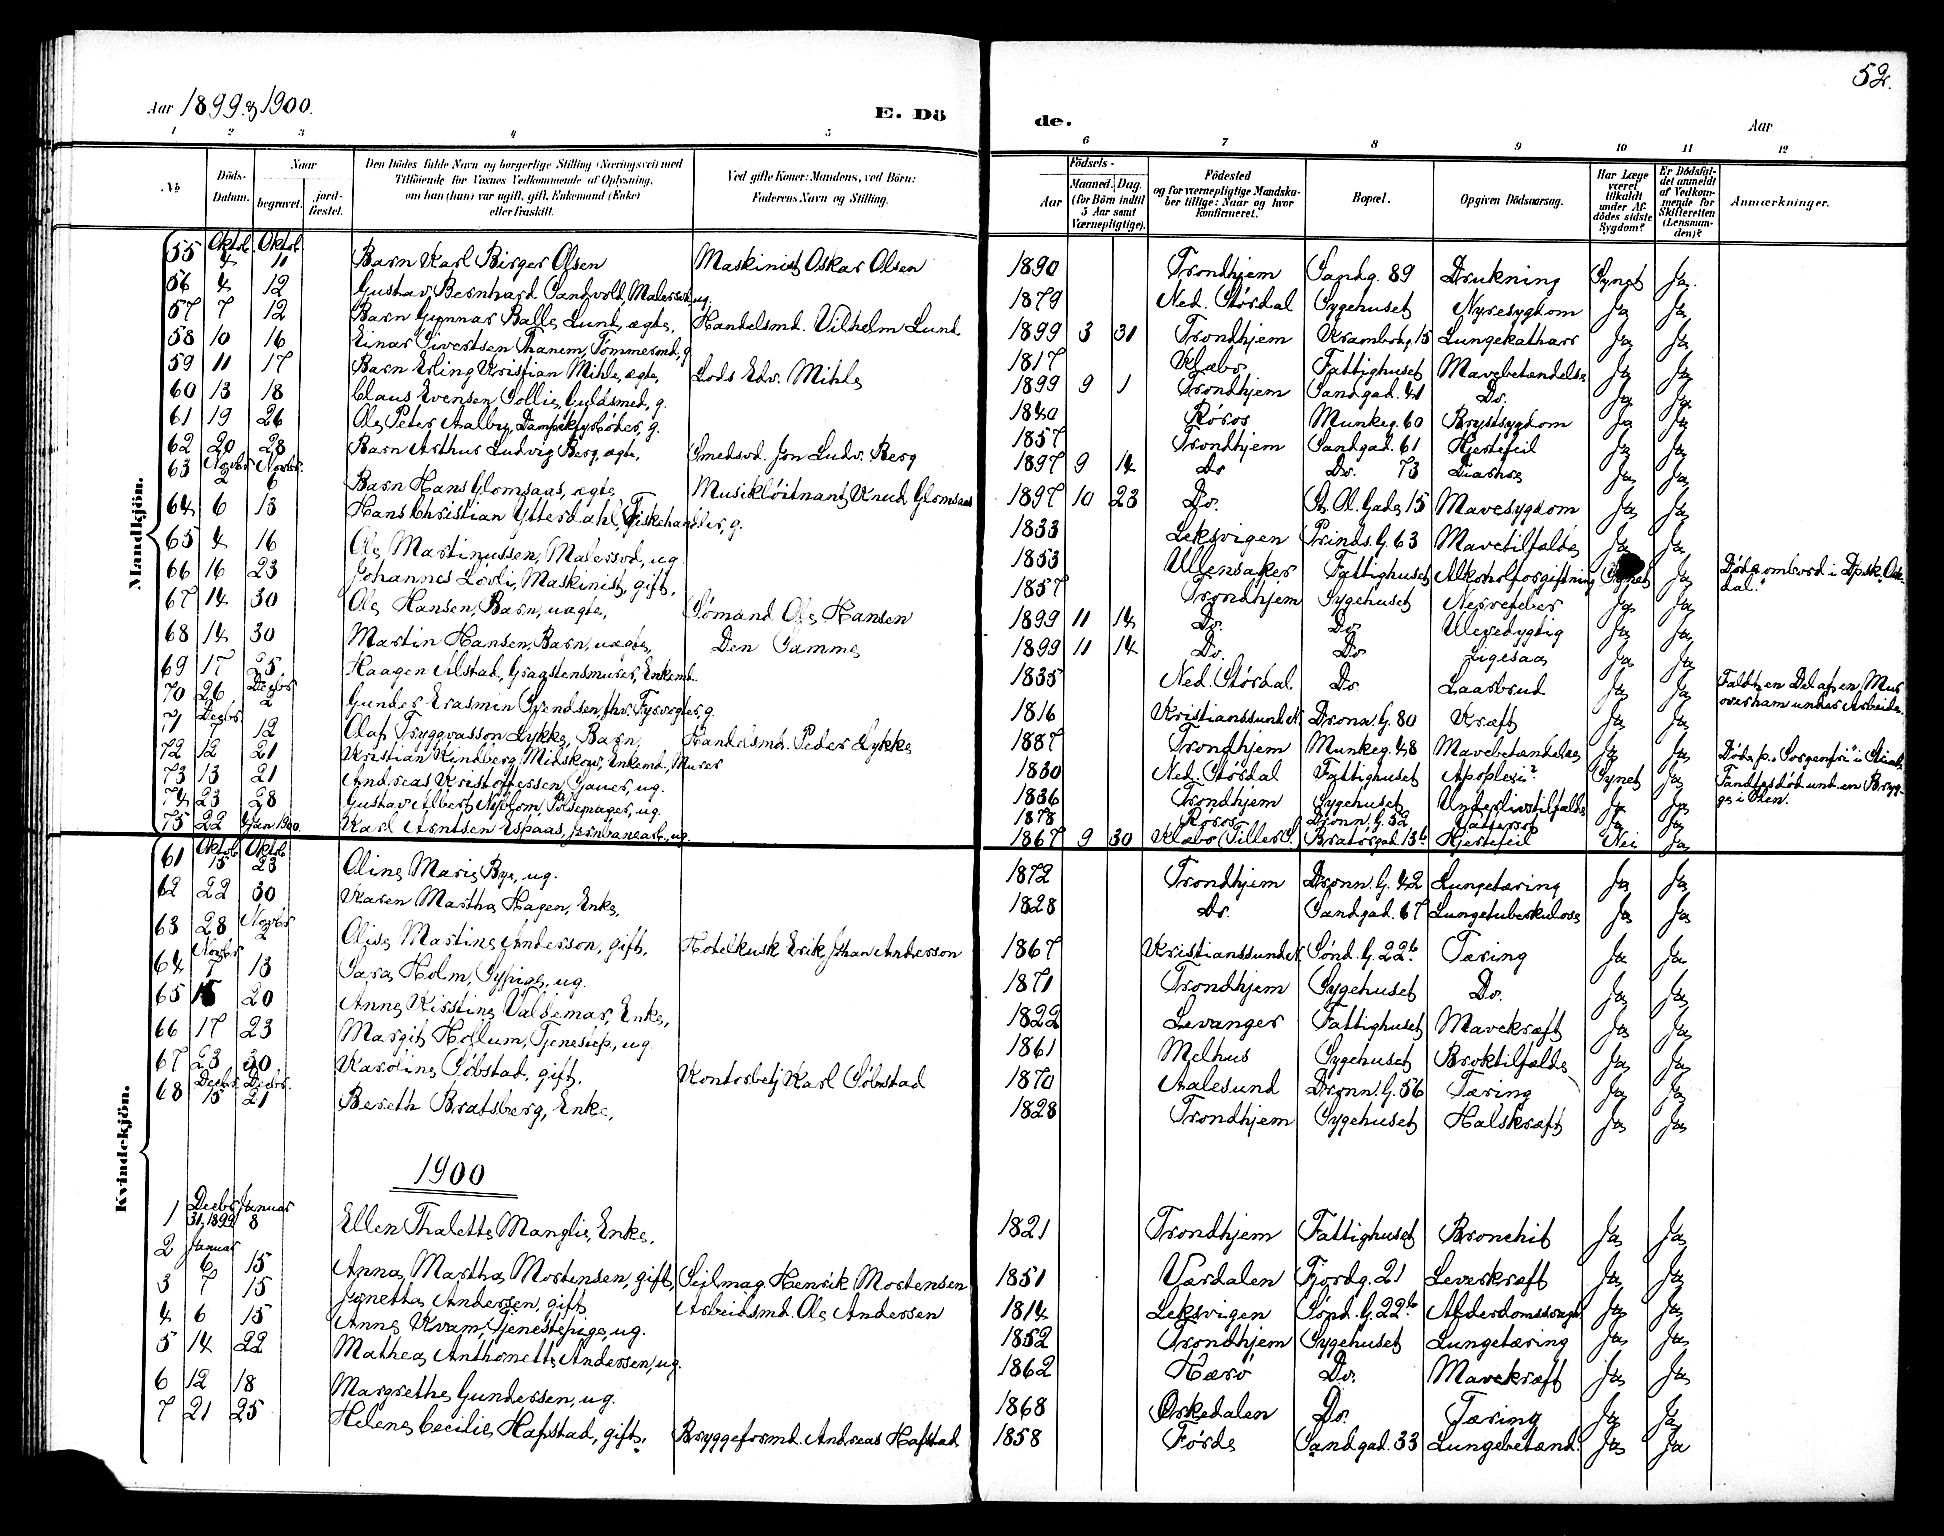 52.
Aar 1899 & 1900.
E. Dö
de.
Aar
1 2 3 4 5 6 7 8 9 10 11 12
No
Döds-Datum.
Naar
begravet.
jordfæstet.
Den Dödes fulde Navn og borgerlige Stilling (Næringsvei) med
Tilföiende for Voxnes Vedkommende af Oplysning,
om han (hun) var ugift, gift, Enkemand (Enke)
eller fraskilt.
Ved gifte Koner: Mandens, ved Börn:
Faderens Navn og Stilling.
Födsels-
Aar
Maaned. Dag.
(for Börn indtil
5 Aar samt
Værnepligtige).
Födested
og for værnepligtige Mandska-
ber tillige: Naar og hvor
konfirmeret.
Bopæl.
Opgiven Dödsaarsag.
Har Læge
været
tilkaldt
under Af-
dödes sidste
Sygdom?
Er Dödsfal-
det anmeldt
af Vedkom-
mende for
Skifteretten
(Lensman-
den)?
Anmærkninger.
Mandkjön.
55 Oktob. 4 Oktob. 11 Barn Karl Birger Olsen Maskinist Oskar Olsen 1890 Trondhjem Sandg. 89 Drukning Synet Ja.
56 4 12 Gustav Bernhard Sandvold, Malersv. ug. 1879 Ned. Stördal Sygehuset Nyresygdom Ja Ja
57 7 12 Barn Gunnar Balle Lund, ægte, Handelsmd. Vilhelm Lund 1899 3 31 Trondhjem Krambodg. 15 Lungekatharr Ja Ja
58 10 16 Einar Sivertsen Thanem, Tømmermd, g 1817 Klæbo Fattighuset Mavebetændelse Ja Ja
59 11 17 Barn Erling Kristian Mihle, ægte, Lods Edv. Mihle 1899 9 1 Trondhjem Sandgad. 41 Do. Ja Ja
60 13 18 Claus Evensen Sollie, Guldsmed, g. 1840 Röros Munkeg. 60 Brystsygdom Ja Ja
61 19 26 Ole Peter Aalby, Dampskfyrböder, g. 1857 Trondhjem Sandgad. 61 Hjertefeil Ja Ja
62 20 28 Barn Arthur Ludvig Berg, ægte, Smedsvd. Jon Ludv. Berg 1897 9 14 Do Do. 73 Diarhoe Ja Ja
63 Novbr 2 Novbr. 6 Barn Hans Glomsaas, ægte, Musikløitnant Knud Glomsaas 1897 10 23 Do. St. Ol. Gade 15 Mavesygdom Ja Ja
64 6 13 Hans Christian Ytterdahl, Fiskehandler, g. 1833 Leksvigen Prinds. G. 63 Mavetilfælde Ja Ja
65 4 16 Ole Martinussen, Malersvd, ug. 1853 Ullensaker Fattighuset Alkoholforgiftning Synet Ja Døde ombord i Dpsk. Ok-
dal.
66 16 23 Johannes Lövli, Maskinist, gift, 1857 Trondhjem Sygehuset Nervefeber Ja Ja
67 14 30 Ole Hansen, Barn, uægte, Sömand Ole Hansen 1899 11 14 Do. Do Ulevedygtig Ja Ja
68 14 30 Martin Hansen, Barn, uægte, Den Samme 1899 11 14 Do. Do Ligesaa Ja Ja
69 17 25 Haagen Alstad, Graastensmurer, Enkemd. 1835 Ned. Stördal Do Laarbrud Ja Ja Faldt en Del af en Mur
over ham under Arbeide.
70 26 Decbr 2 Gunder Erasmin Svendsen, fhv. Fyrvogter, g. 1816 Kristianssund N. Dronn. G. 80 Kræft Ja Ja
71 Decbr. 7 12 Olaf Tryggvasson Lykke, Barn, Handelsmd. Peder Lykke 1887 Trondhjem Munkeg. 48 Mavebetændelse Ja Ja
72 12 21 Kristian Kindberg Midskov, Enkemd., Murer 1830 Ned. Stördal Fattighuset Apoplexi? Synet Ja
73 13 21 Andreas Kristoffersen Sauer, ug. 1836 Trondhjem Sygehuset Underlivstilfælde Ja Ja
74 23 28 Gustav Albert Nyblom, Pölsemager, ug. 1878 Röros Dronn. G. 52 Ja Ja
75 22 4 Jan 1900. Karl Arntsen Espaas, Jernbanearb., ug. 1867 9 30 Klæbo (Tiller S.) Bratörgad. 13b Hjertefeil Nei Ja
Kvindekjön.
61 Oktob. 15 Oktob. 23 Oline Marie Bye, ug. 1872 Trondhjem Dronn. G. 42 Lungetæring Ja Ja
62 22 30 Karen Martha Hagen, Enke, 1828 Do. Sandgad. 67 Lungetuberkulose Ja Ja
63 28 Novbr 2 Olise Martine Anderson, gift, Hotelkusk Erik Johan Anderson 1867 Kristianssund N. Sönd. G. 22b Tæring Ja Ja
64 Novbr 7 13 Sara Holm, Sypige, ug. 1871 Trondhjem Sygehuset Do. Ja Ja
65 15 20 Anne Kirstine Valdemar, Enke, 1822 Levanger Fattighuset Mavekræft Ja Ja
66 17 23 Margit Hollum, Tjenestep., ug. 1861 Melhus Sygehuset Broktilfælde Ja Ja
67 23 30 Karoline Söbstad, gift, Kontorbetj Karl Söbstad 1870 Aalesund Dronn. G. 56 Tæring Ja Ja
68 Decbr. 15 Decbr. 21 Bereth Bratsberg, Enke, 1828 Trondhjem Sygehuset Halskræft Ja Ja
1900
1 Decbr 31, 1899 Januar 8 Ellen Thalette Manglie, Enke, 1821 Trondhjem Fattighuset Bronchit Ja Ja
2 Januar 6 15 Anna Martha Mortensen, gift, Seilmag. Henrik Mortensen 1851 Værdalen Fjordg. 21 Leverkræft Ja Ja
3 7 15 Jonetta Andersen, gift Arbeidsmd. Ole Andersen 1814 Leksvigen Sönd. G. 22b Alderdomssvagh Ja Ja
4 6 15 Anne Kvam, Tjenestepige, ug. 1852 Trondhjem Sygehuset Lungetæring Ja Ja
5 14 22 Mathea Anthonette Andersen, ug. 1862 Hærö Do. Mavekræft Ja Ja
6 12 18 Margrethe Gundersen, ug. 1868 Orkedalen Do. Tæring Ja Ja
7 21 25 Helene Cecilie Hafstad, gift, Bryggeformd. Andreas Hafstad 1858 Förde Sandgad. 33 Lungebetænd. Ja Ja